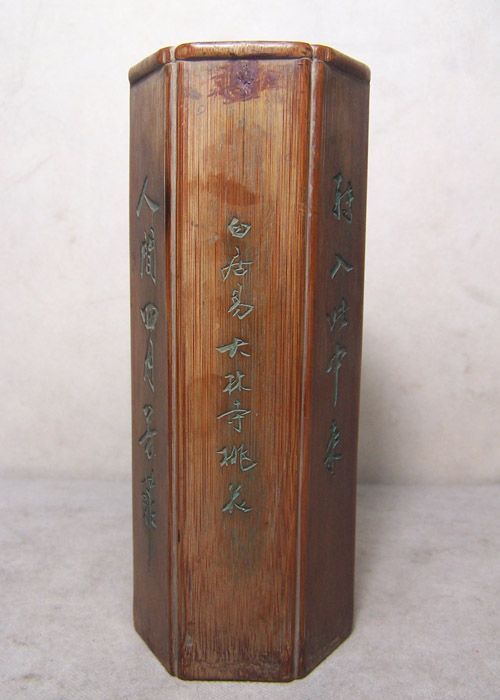 轉入此中來
白居易大林寺桃花
人間四月芳菲